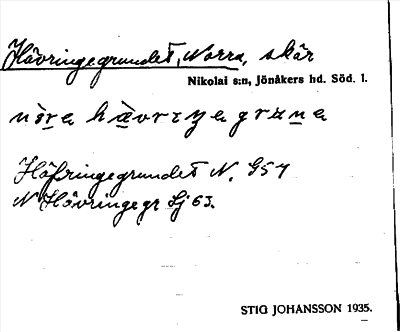 Hävringegrundet, Norra, skär
Nikolai s:n, Jönåkers hd. Söd. l.
Häfringegrundet N. G54
N Hävringegr Sj 63.
STIG JOHANSSON 1935.